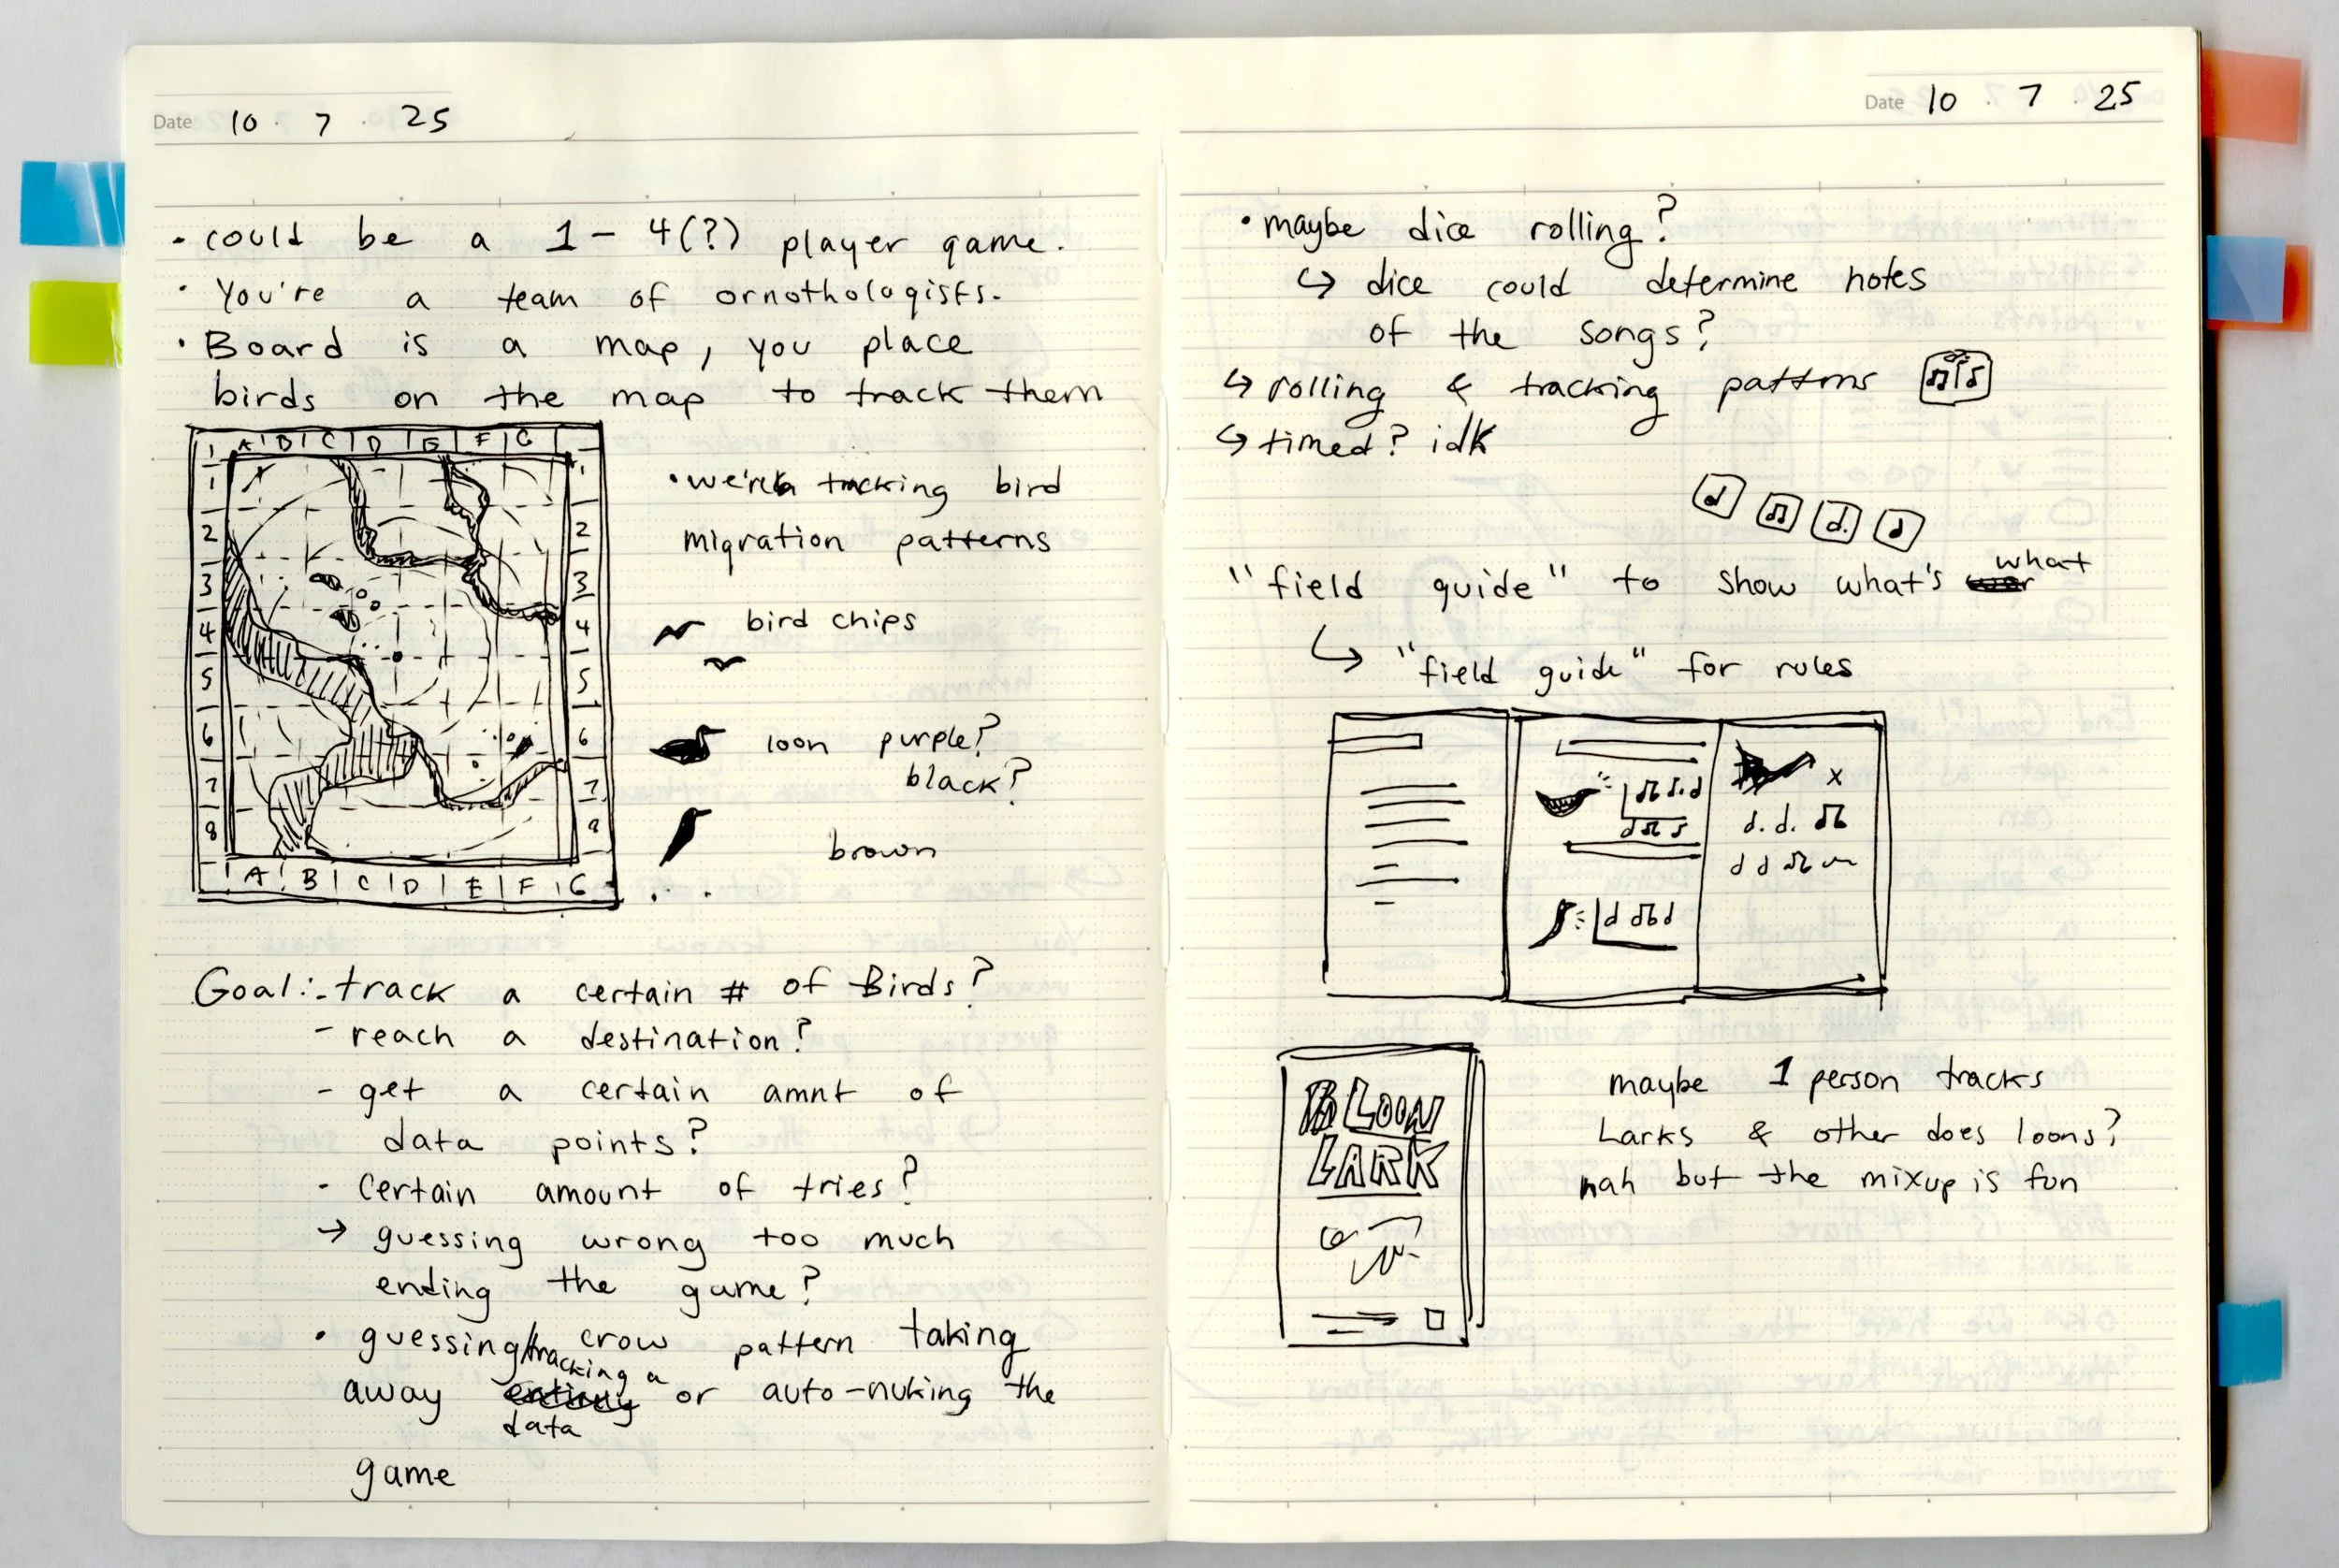 Date 10 · 7 · 25
· could be a 1 - 4(?) player game.
· You're a team of ornothologists.
· Board is a map, you place
birds on the map to track them
A B C D E F G
1
1
2
3
4
5
6
7
8
1
2
3
4
5
6
7
8
A B C D E F G
· we're tracking bird
migration patterns
bird chips
loon purple?
black?
brown
Goal: - track a certain # of Birds?
- reach a destination?
- get a certain amnt of
data points?
- Certain amount of tries?
→ guessing wrong too much
ending the game?
· guessing/tracking a crow pattern taking
away data or auto-nuking the
game
Date 10 · 7 · 25
· maybe dice rolling?
↳ dice could determine notes
of the songs?
↳ rolling & tracking patterns
↳ timed? idk
"field guide" to show what's what
↳ "field guide" for rules
x
LOON
LARK
maybe 1 person tracks
Larks & other does loons?
nah but the mixup is fun